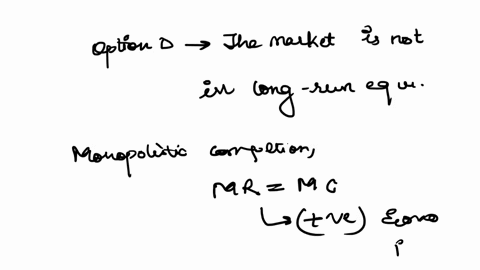 Option D → The market is not
in long-run equi.
Monopolistic completion,
MR = MC
↳ (+ve) Econo
P